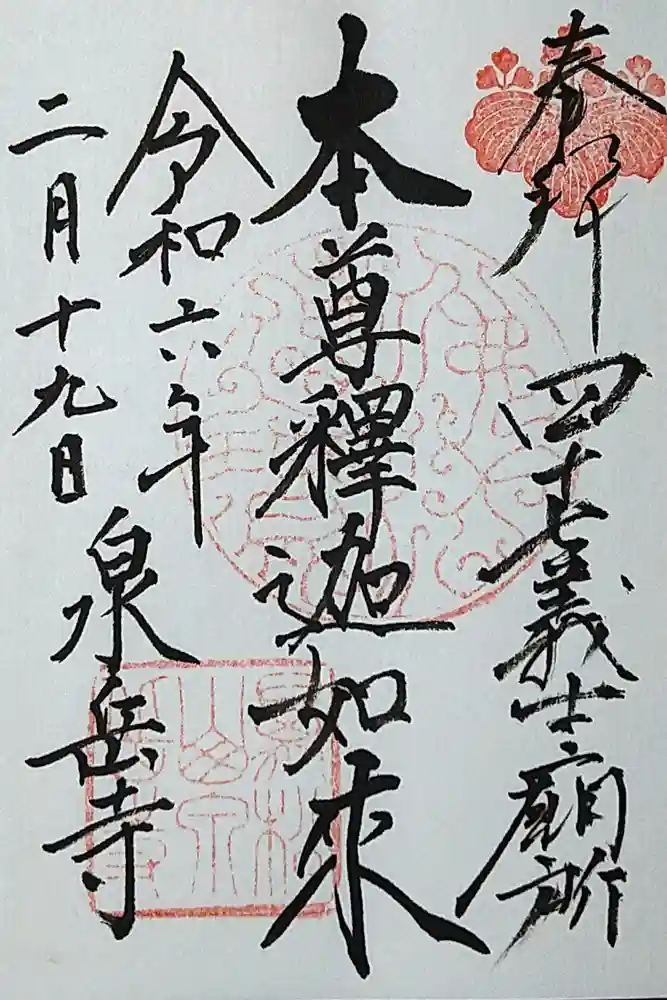 奉拝 四十七義士廟所
本尊釋迦如来
令和六年
二月十九日
泉岳寺